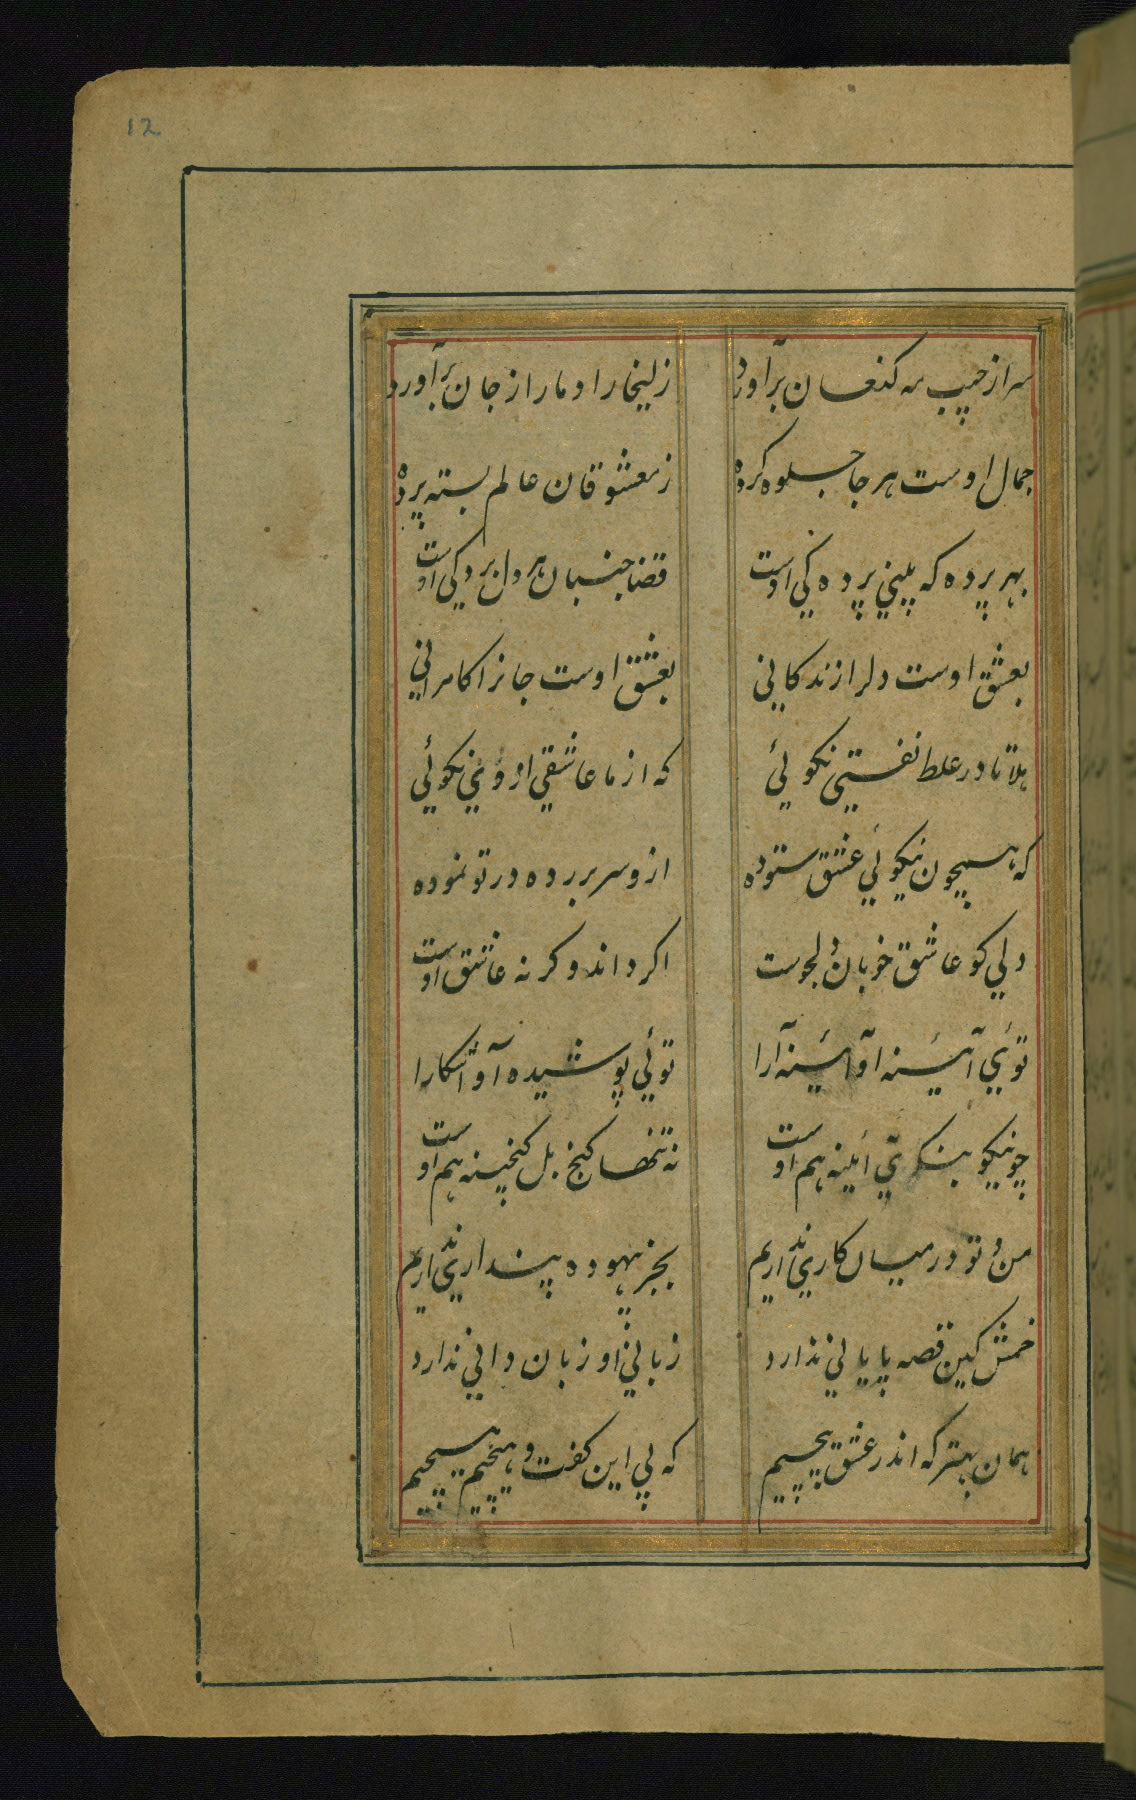 12
سر از جیب مه کنعان برآورد زلیخا را دمار از جان برآورد
جمال اوست هر جا جلوه کرده ز معشوقان عالم بسته پرده
بهر پرده که بینی پردکی اوست قضا جنبان هر دل بردکی اوست
بعشق اوست دلرا زندکانی بعشق اوست جانرا کامرانی
هلا تا در غلط نفتی نکوئی که از ما عاشقی از وی نکوئی
که همچون نیکوئی عشق ستوده ازو سر برده در تو نموده
دلی کو عاشق خوبان دلجوست اکر داند وکر نه عاشق اوست
توئی آئینه او آئینه آرا توئی پوشیده و او آشکارا
چو نیکو بنکری آئینه هم اوست نه تنها کنج بل کنجینه هم اوست
من و تو در میان کاری نداریم بجز بیهوده پنداری نداریم
خمش کین قصه پایانی ندارد زبانی و زبان دانی ندارد
همان بهتر که اندر عشق پیچیم که بی این کفت و هیچیم هیچیم